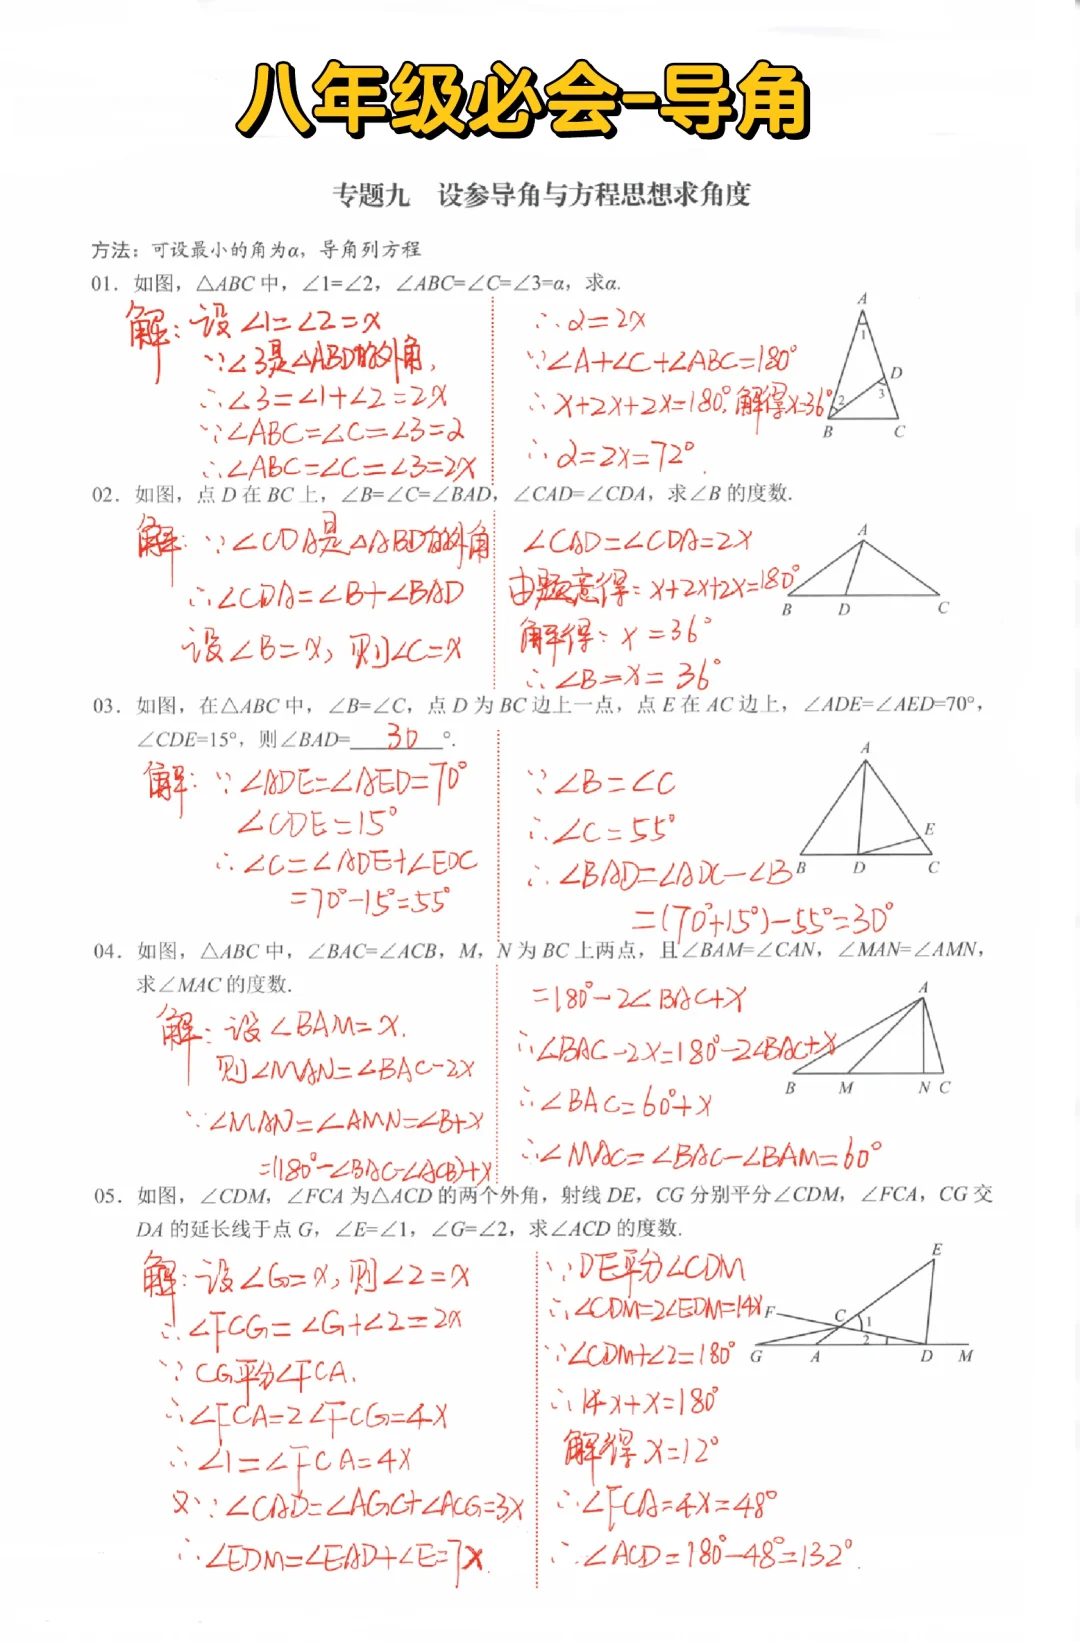 八年级必会-导角
专题九 设参导角与方程思想求角度
方法：可设最小的角为α，导角列方程
01. 如图，△ABC中，∠1=∠2，∠ABC=∠C=∠3=α，求α.
解：设∠1=∠2=x
∵∠3是△ABD的外角，
∴∠3=∠1+∠2=2x
∵∠ABC=∠C=∠3=α
∴∠ABC=∠C=∠3=2x
∴α=2x
∵∠A+∠C+∠ABC=180°
∴x+2x+2x=180°，解得x=36°
∴α=2x=72°.
A
1
D
2
3
B
C
02. 如图，点D在BC上，∠B=∠C=∠BAD，∠CAD=∠CDA，求∠B的度数.
解：∵∠CDA是△ABD的外角
∴∠CDA=∠B+∠BAD
设∠B=x，则∠C=x
∠CAD=∠CDA=2x
由题意得：x+2x+2x=180°
解得：x=36°
∴∠B=x=36°
A
B D C
03. 如图，在△ABC中，∠B=∠C，点D为BC边上一点，点E在AC边上，∠ADE=∠AED=70°，
∠CDE=15°，则∠BAD=30°.
解：∵∠ADE=∠AED=70°
∠CDE=15°
∴∠C=∠ADE+∠EDC
=70°-15°=55°
∵∠B=∠C
∴∠C=55°
∴∠BAD=∠ADC-∠B
=(70°+15°)-55°=30°
A
E
B D C
04. 如图，△ABC中，∠BAC=∠ACB，M，N为BC上两点，且∠BAM=∠CAN，∠MAN=∠AMN，
求∠MAC的度数.
解：设∠BAM=x.
则∠MAN=∠BAC-2x
∵∠MAN=∠AMN=∠B+x
=(180°-∠BAC-∠ACB)+x
=180°-2∠BAC+x
∴∠BAC-2x=180°-2∠BAC+x
∴∠BAC=60°+x
∴∠MAC=∠BAC-∠BAM=60°
A
B M N C
05. 如图，∠CDM，∠FCA为△ACD的两个外角，射线DE，CG分别平分∠CDM，∠FCA，CG交
DA的延长线于点G，∠E=∠1，∠G=∠2，求∠ACD的度数.
解：设∠G=x，则∠2=x
∴∠FCG=∠G+∠2=2x
∵CG平分∠FCA.
∴∠FCA=2∠FCG=4x
∴∠1=∠FCA=4x
又∵∠CAD=∠AGC+∠ACG=3x
∴∠EDM=∠EAD+∠E=7x.
∵DE平分∠CDM
∴∠CDM=2∠EDM=14x
∵∠CDM+∠2=180°
∴14x+x=180°
解得x=12°
∴∠FCA=4x=48°
∴∠ACD=180°-48°=132°.
E
F
C
1
2
G A D M